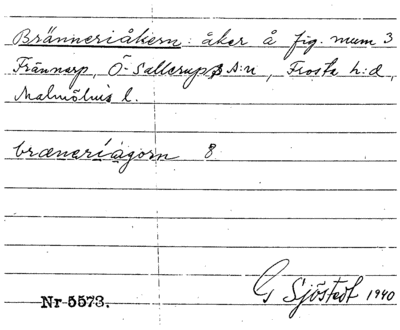 Bränneriåkern: åker å fig. num 3
Frännarp, Ö. Sallerups s:n, Frosta h:d,
Malmöhus l.
bræneriágorn 8
G Sjöstedt 1940
Nr 5573.